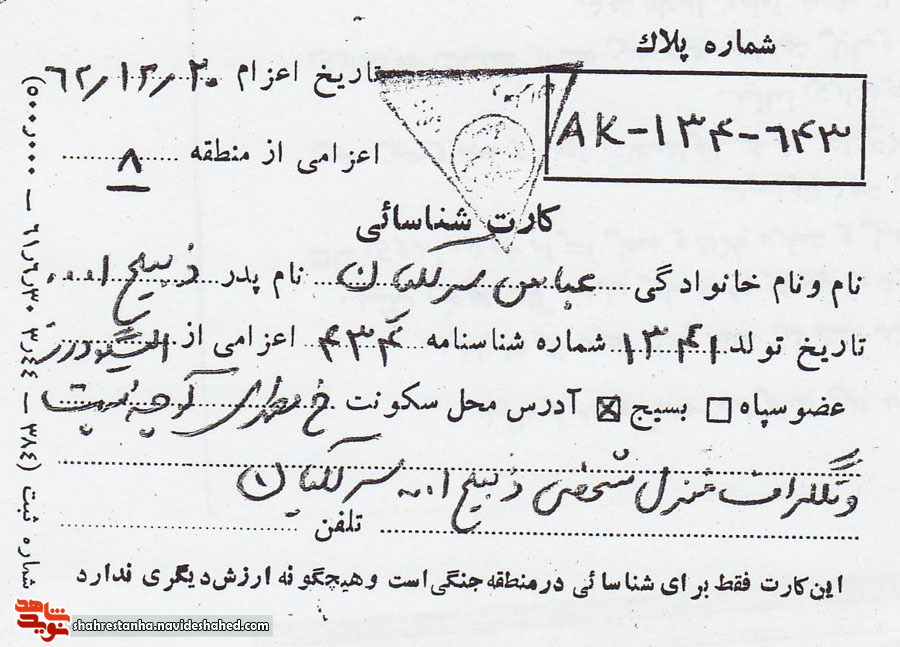 شماره پلاك
AK-۱۳۴-۶۴۳
تاریخ اعزام ۶۲/۱۲/۲۰
اعزامی از منطقه ۸
کارت شناسائی
نام و نام خانوادگی عباس سرلکیان نام پدر ذبیح اله
تاریخ تولد ۱۳۴۱ شماره شناسنامه ۴۳۴ اعزامی از الیگودرز
عضو سپاه ☐ بسیج ☒ آدرس محل سکونت خ کوچه پست
و تلگراف منزل شخصی ذبیح اله سرلکیان
تلفن
این کارت فقط برای شناسائی در منطقه جنگی است و هیچگونه ارزش دیگری ندارد
شماره ثبت (۳۸۴ — ۳۰۴۴ ۶۱/۶/۳۰ — ۵۰۰۰۰۰)
نوید شاهد
shahrestanha.navideshahed.com